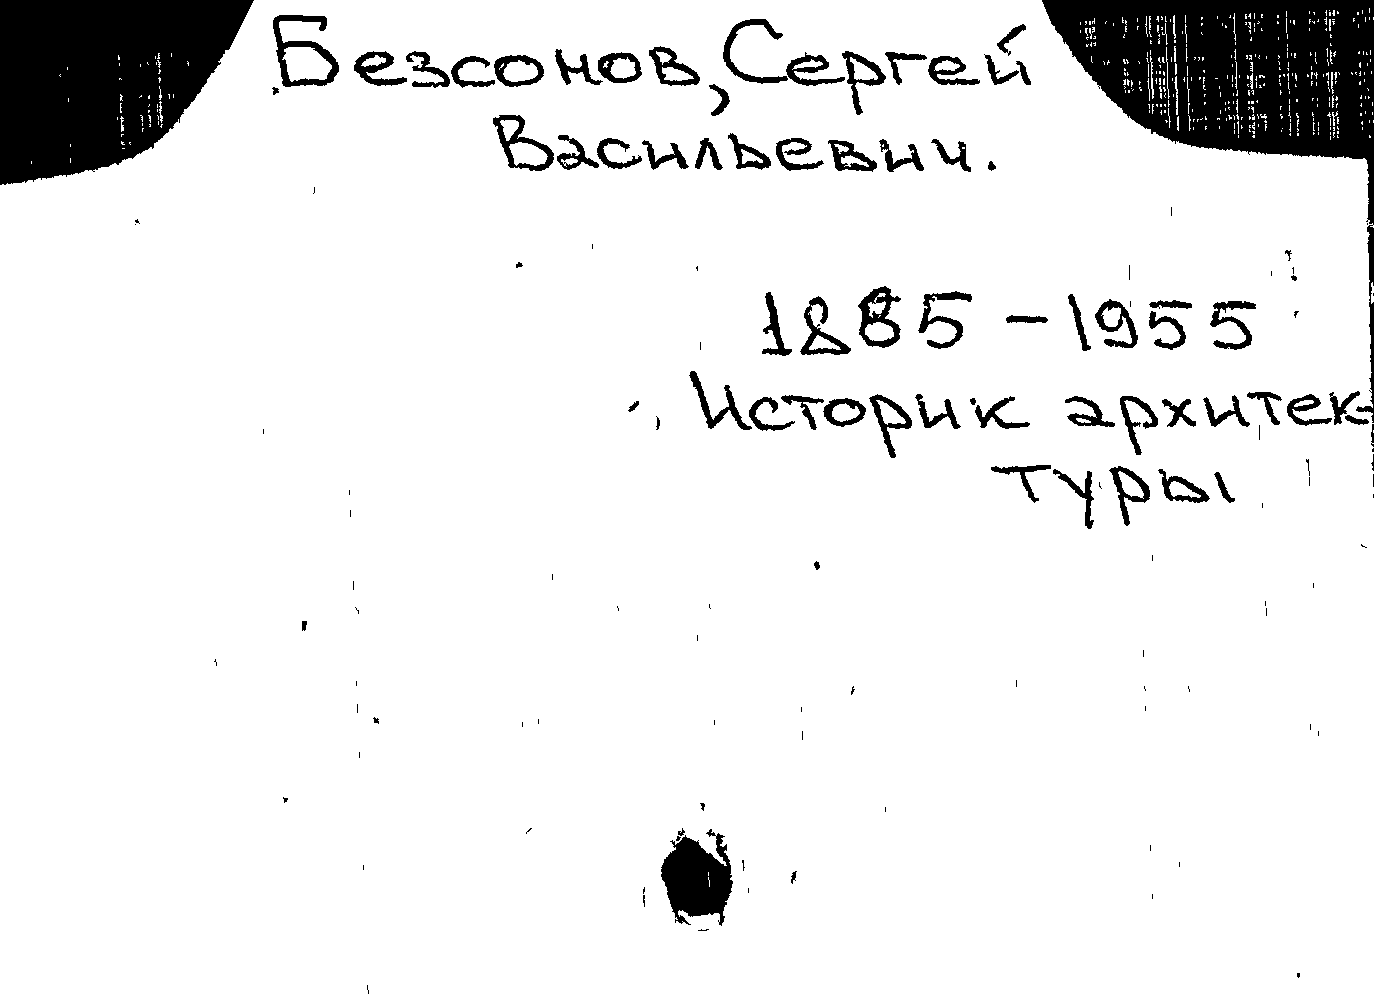 Безсонов, Сергей
Васильевич.
1885 - 1955
Историк архитек-
туры